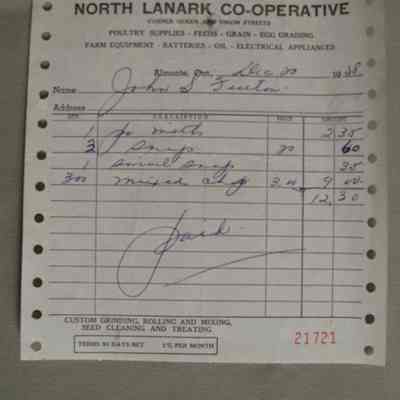 NORTH LANARK CO-OPERATIVE
CORNER QUEEN AND UNION STREETS
POULTRY SUPPLIES - FEEDS - GRAIN - EGG GRADING
FARM EQUIPMENT - BATTERIES - OIL - ELECTRICAL APPLIANCES
Almonte, Ont., Dec 20 19
Name John S
Address
QTY. DESCRIPTION PRICE AMOUNT
1 pr mitts 2 35
3 snap 20 60
1 small snap 35
300 mixed chop 3.00 9 00
12.30
Paid
CUSTOM GRINDING, ROLLING AND MIXING,
SEED CLEANING AND TREATING
TERMS 30 DAYS NET 1% PER MONTH
21721